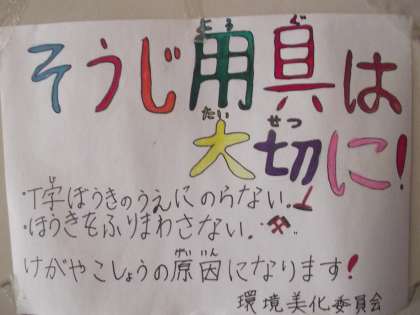 そうじ用具は
大切に!
・T字ぼうきのうえにのらない。
・ほうきをふりまわさない。
けがやこしょうの原因になります!
環境美化委員会